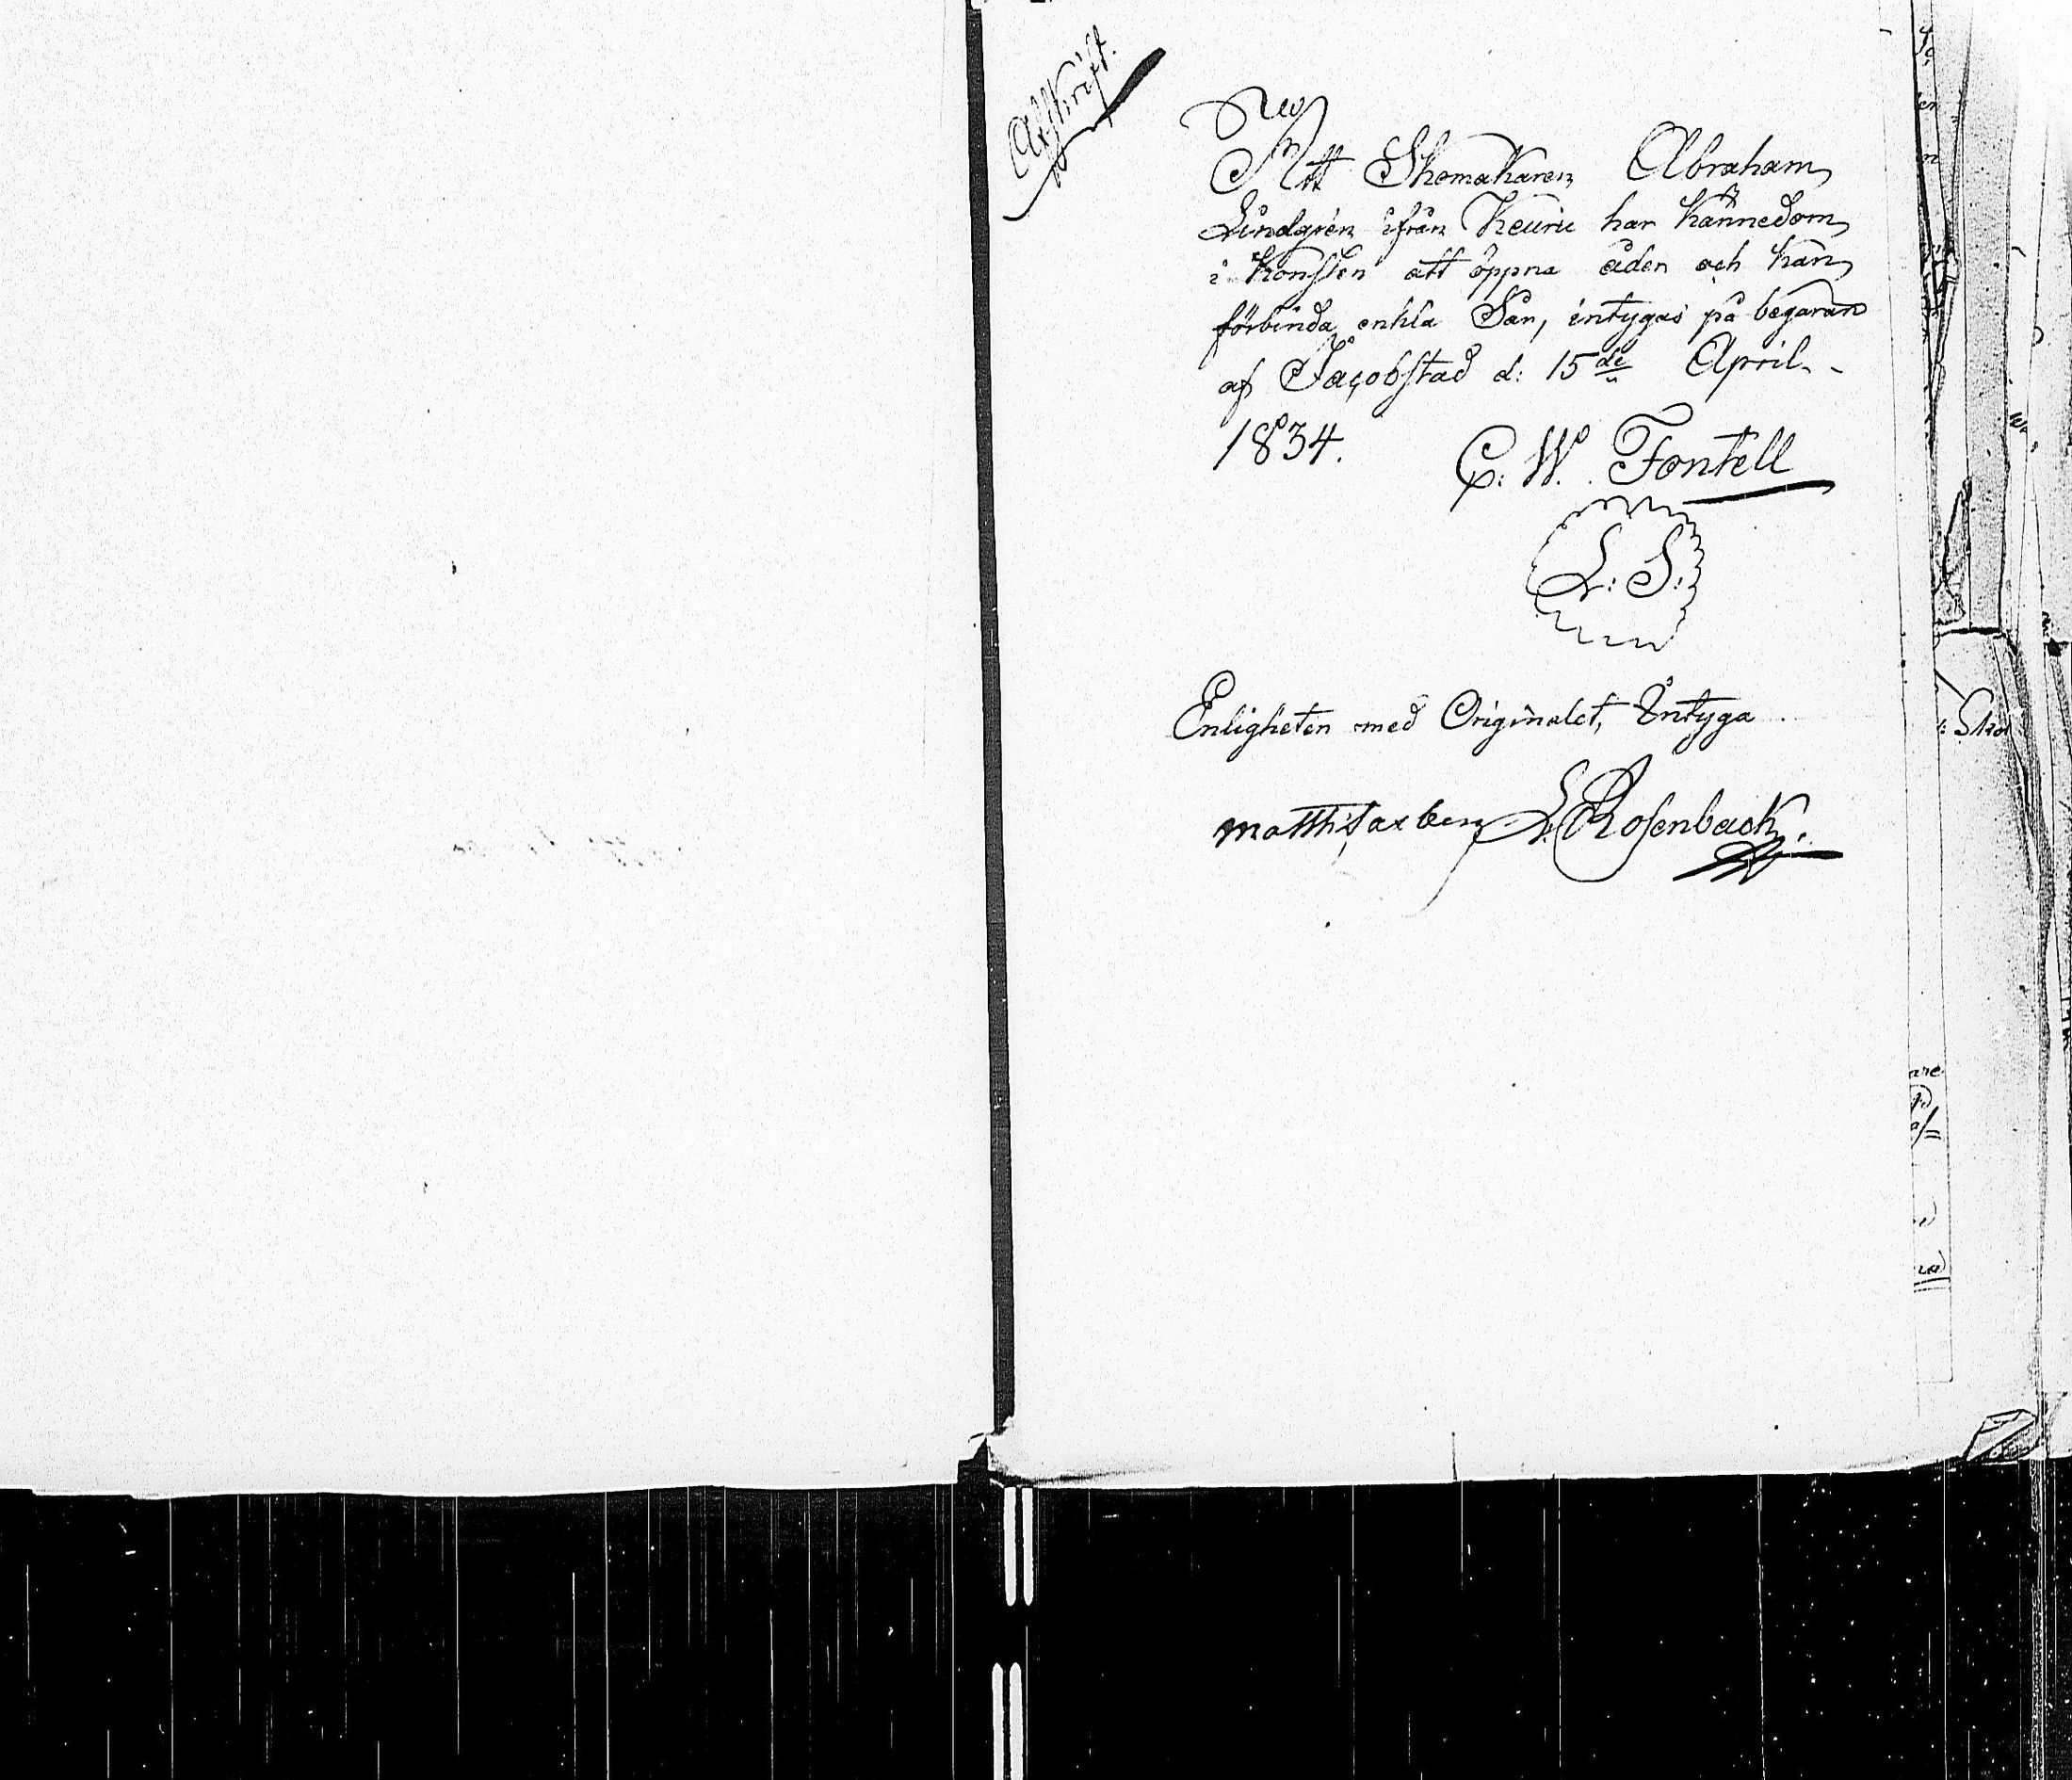 Afskrift.
Att Skomakaren Abraham
Lindgrén ifrån Keuru har kännedom
i Konsten att öppna åder och kan
förbinda enkla Sår, intygas på begäran
af Jacobstad d: 15de April
1834.
C. W. Fontell
L: S:
Enligheten med Originalet, Intyga
matths L. Rosenback.